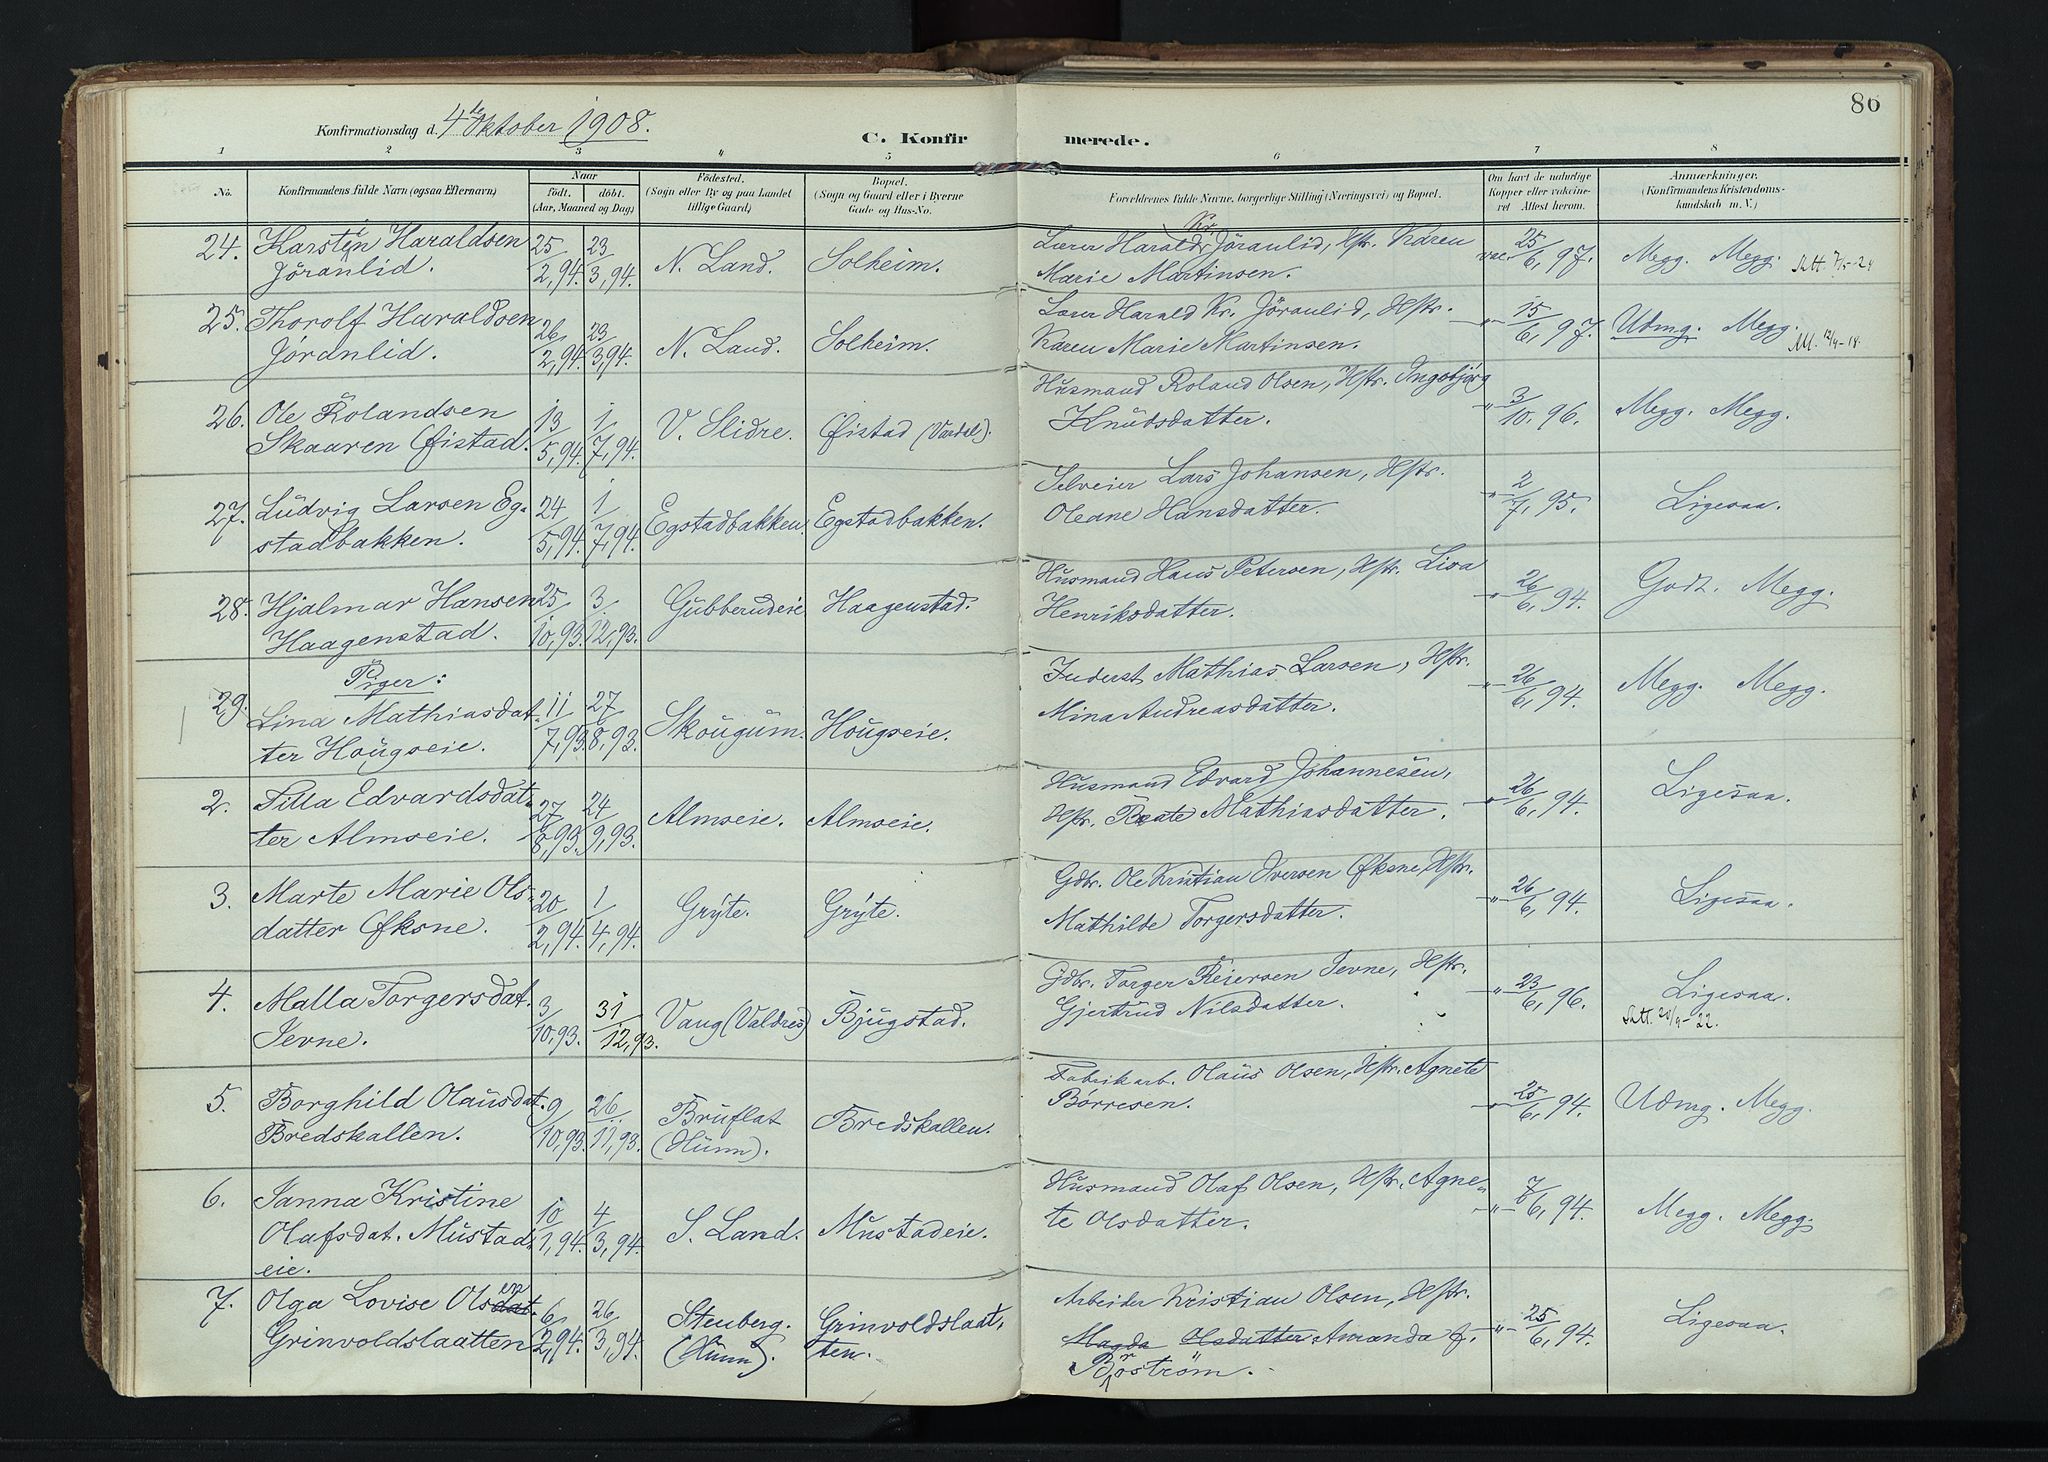 86
Konfirmationsdag d. 4de Oktober 1908.
C. Konfirmerede.
1 2 3 4 5 6 7 8
No.
Konfirmandens fulde Navn (ogsaa Efternavn)
Naar
født. døbt.
(Aar, Maaned og Dag)
Fødested.
(Sogn eller By og paa Landet
tillige Gaard)
Bopæl.
(Sogn og Gaard eller i Byerne
Gade og Hus-No.
Forældrenes fulde Navne, borgerlige Stilling (Næringsvei) og Bopæl.
Om havt de naturlige
Kopper eller vakcineret
Attest herom.
Anmærkninger.
(Konfirmandens Kristendomskundskab
m. V.)
24. Karsten Haraldsen
Jöranlid. 25/2,94. 23/3,94. N. Land. Solheim.
Lærer Harald Kr. Jöranlid, Hstr. Karen
Marie Martinsen. vac. 25/6,97. Megg. Megg. Att. 7/5-24
25. Thorolf Haraldsen
Jöranlid. 26/2,94. 23/3,94. N. Land. Solheim.
Lærer Harald Kr. Jöranlid, Hstr.
Karen Marie Martinsen. -"- 15/6,97. Udmg. Megg. Att. 12/4-18.
26. Ole Rolandsen
Skaaren Øistad. 13/5,94. 1/7,94. V. Slidre. Øistad (Vardal).
Husmand Roland Olsen, Hstr. Ingebjörg
Knudsdatter. -"- 3/10,96. Megg. Megg.
27. Ludvig Larsen Egstadbakken.
24/5,94. 1/7,94. Egstadbakken. Egstadbakken.
Selveier Lars Johansen, Hstr.
Oleane Hansdatter. -"- 2/7,95. Ligesaa.
28. Hjalmar Hansen
Haagenstad. 25/10,93. 3/12,93. Gubberudeie Haagenstad.
Husmand Hans Petersen, Hstr. Lisa
Henriksdatter. -"- 26/6,94. Godt. Megg.
Piger:
29. Lina Mathiasdatter
Hougseie. 11/7,93. 27/8,93. Skougum. Hougseie.
Inderst Mathias Larsen, Hstr.
Mina Andreasdatter. -"- 26/6,94. Megg. Megg.
2. Tilla Edvardsdatter
Almseie. 27/8,93. 24/9,93. Almseie. Almseie.
Husmand Edvard Johannesen,
Hstr. Beate Mathiasdatter. -"- 26/6,94. Ligesaa.
3. Marte Marie Olsdatter
Øksne. 20/2,94. 1/4,94. Gryte. Gryte.
Gdbr. Ole Kristian Iversen Øksne, Hstr.
Mathilde Torgersdatter. -"- 26/6,94. Ligesaa.
4. Malla Torgersdat.
Jevne. 3/10,93. 31/12,93. Vang (Valdres) Bjugstad.
Gdbr. Torger Reiersen Jevne, Hstr.
Gjertrud Nilsdatter. -"- 23/6,96. Ligesaa.
Att. 20/9-22.
5. Borghild Olausdat.
Bredskallen. 9/10,93. 26/11,93. Bruflat
(Hunn). Bredskallen.
Fabrikarb. Olaus Olsen, Hstr. Agnete
Børresen. -"- 25/6,94. Udmg. Megg.
6. Janna Kristine
Olafsdat. Mustadeie.
10/1,94. 4/3,94. S. Land. Mustadeie.
Husmand Olaf Olsen, Hstr. Agnete
Olsdatter. -"- 7/6,94. Megg. Megg.
7. Olga Lovise Olsdat. en
Grinvoldslaatten 6/2,94. 26/3,94. Stenberg.
(Hunn). Grinvoldslaatten.
Arbeider Kristian Olsen, Hstr.
Magda Olsdatter Amanda f.
Broström. -"- 25/6,94. Ligesaa.